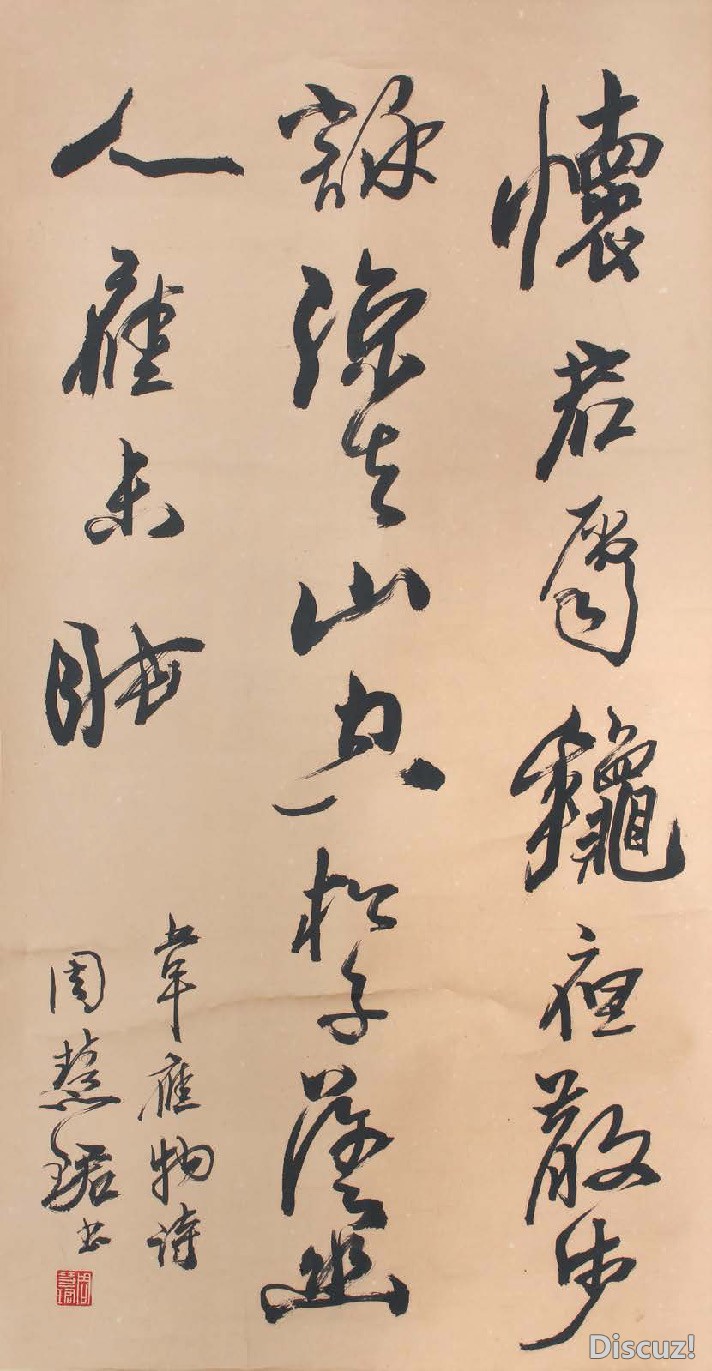 懷君屬龝夜散步
詠涼天山空松子落幽
人應未眠
韋應物詩
周慧珺書
周慧珺
Discuz!